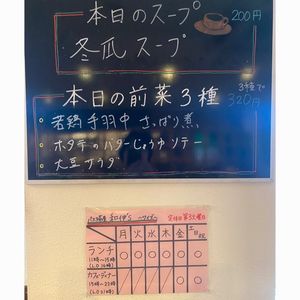 本日のスープ 200円
冬瓜スープ
本日の前菜3種 3種で320円
・若鶏手羽中 さっぱり煮
・ホタテのバターじょうゆソテー
・大豆サラダ
月 火 水 木 金 土日祝
ランチ
11時〜15時
○ ○ ○ ○ ○ ○
カフェ・ディナー